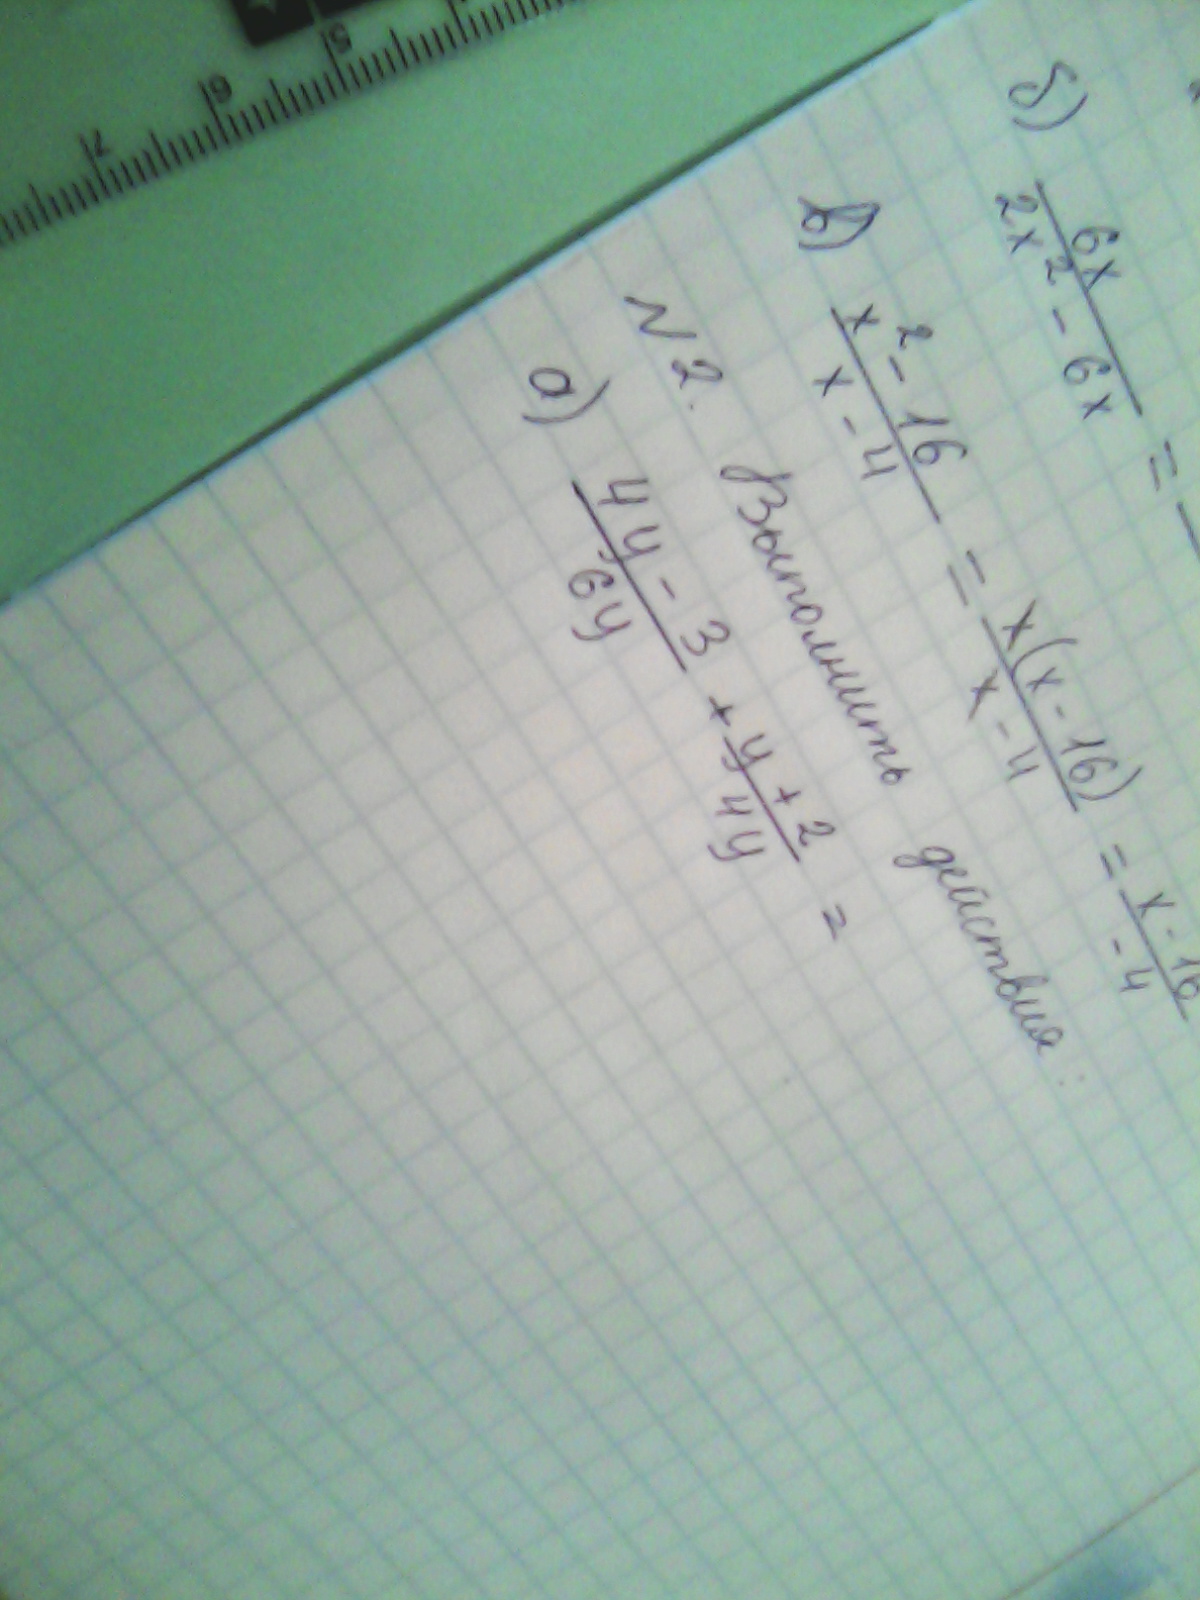 5 6 7
б) 6x / 2x² - 6x =
в) x² - 16 / x - 4 = x(x - 16) / x - 4 = x - 16 / - 4
N 2. Выполнить действия:
а) 4y - 3 / 6y + y + 2 / 4y =